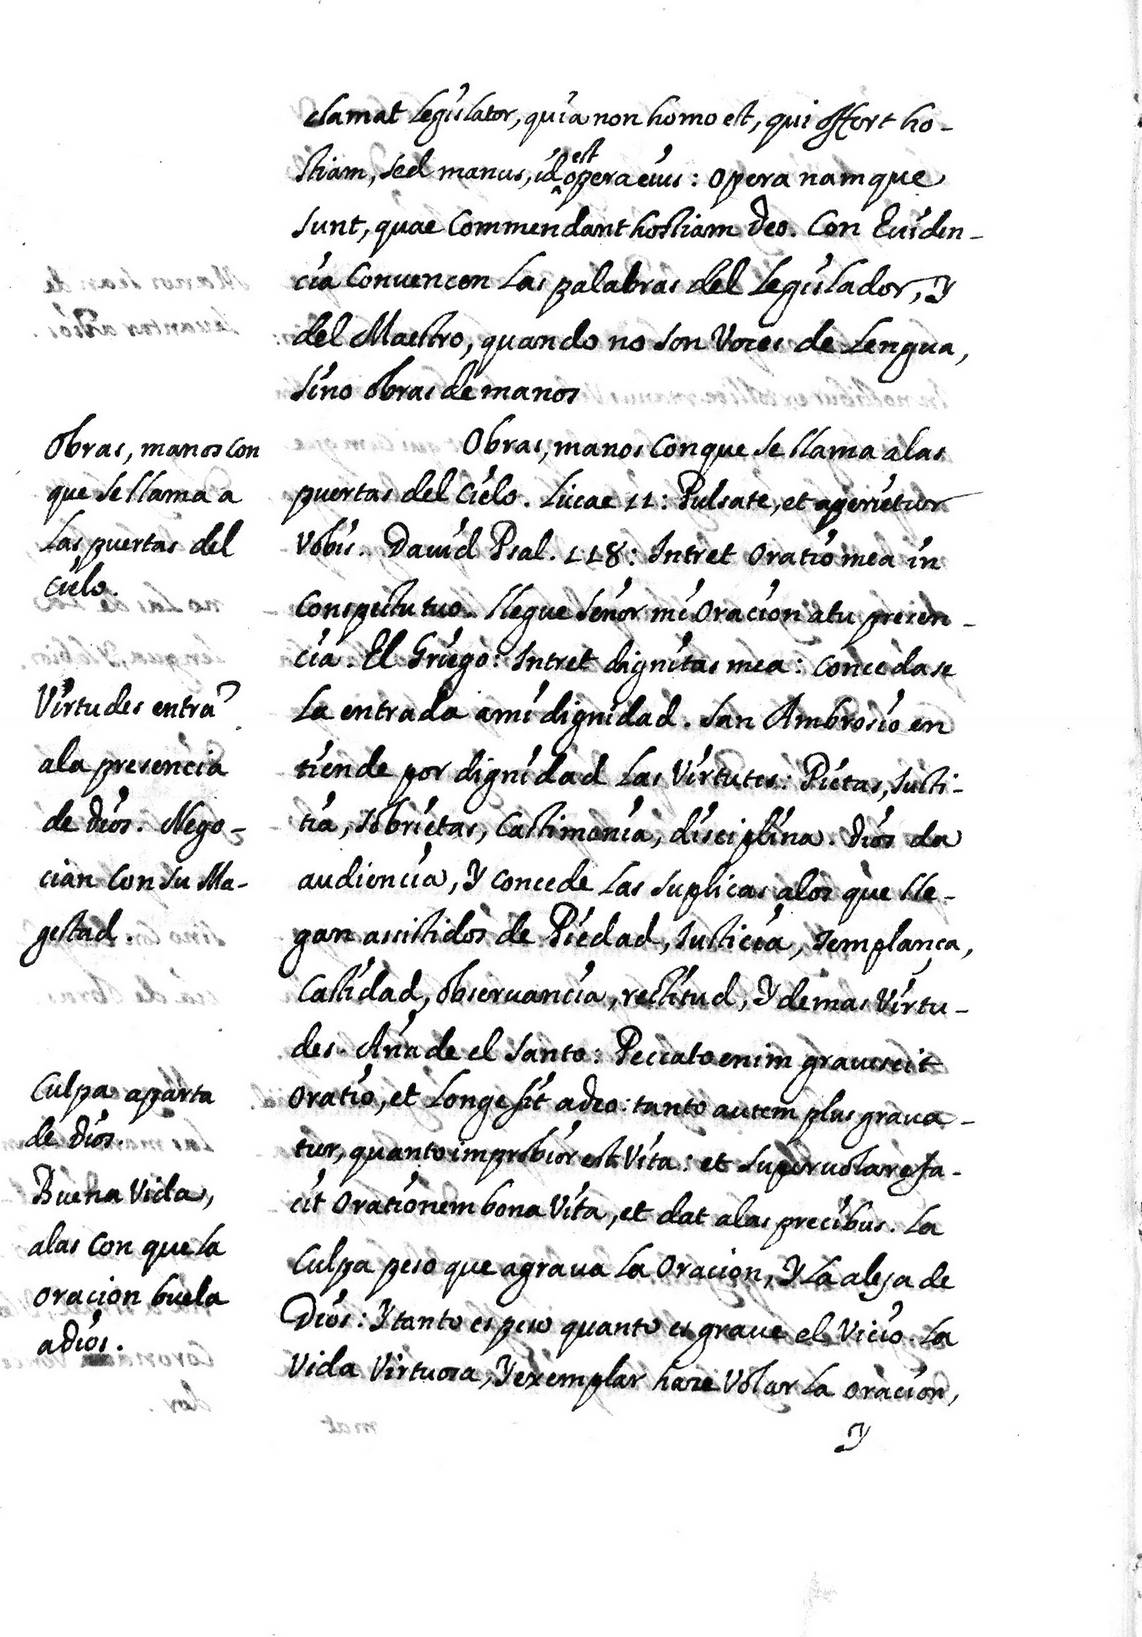 clamat Legislator, quia non homo est, qui offert ho-
stiam, sed manus, id est opera eius: opera namque
sunt, quae Commendant hostiam Deo. Con Euiden-
cia Conuencen Las palabras del Legislador, Y
del Maestro, quando no son Vozes de Lengua,
sino obras de manos
Obras, manos Con que se llama a las
puertas del Cielo. Lucae 11: Pulsate, et aperietur
Vobis. Dauid Psal. 118: Intret Oratio mea in
Conspectu tuo. llegue señor mi Oracion a tu presen-
cia. El Griego: Intret dignitas mea: Concedase
La entrada a mi dignidad. San Ambrosio en
tiende por dignidad Las Virtutes: Pietas, Justi-
tia, sobrietas, Castimonia, disciplina. Dios da
audiencia, Y concede Las suplicas a los que lle-
gan assistidos de Piedad, Justicia, Templança,
Castidad, obseruancia, rectitud, Y demas Virtu-
des. Añade el Santo: Peccato enim grauescit
Oratio, et Longe fit a deo: tanto autem plus graua-
tur, quanto improbior est Vita: et superuolare fa-
cit Orationem bona Vita, et dat alas precibus. La
Culpa peso que agraua La Oracion, Y La aleja de
Dios: Y tanto es peso quanto es graue el Vicio. La
Vida Virtuosa, Y exemplar haze Volar La Oracion,
Y
Obras, manos con
que se llama a
Las puertas del
Cielo.
Virtudes entrã
a la presencia
de Dios. Nego-
cian Con su Ma-
gestad.
Culpa aparta
de Dios.
Buena Vida,
alas Con que La
oracion buela
a Dios.